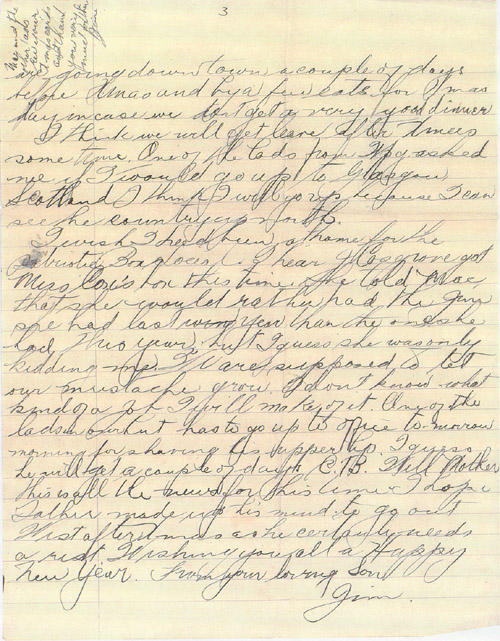 3
are going down town a couple of days
before Xmas and buy a few eats for Xmas
day in case we don't get a very good dinner
I think we will get leave after Xmas
some time. One of the lads from Wpg asked
me if I would go up to Glasgow
Scotland I think I will go up because I can
see the country up north.
I wish I had been at home for the
Patriotic Box social. I hear Hargrove got
Miss box on this time. She told Mac
that she would rather had the guy
she had last year than the one she
had this year, but I guess she was only
kidding me. We are supposed to let
our mustache grow. I don't know what
kind of a job I will make of it. One of the
lads in our hut has to go up to office to-morrow
morning for shaving his upper lip. I guess
he will get a couple of days C.B. Well Mother
this is all the news for this time. I hope
Father made up his mind to go out
West after Xmas as he certainly needs
a rest. Wishing you all a Happy
New Year. From your loving Son
Jim.